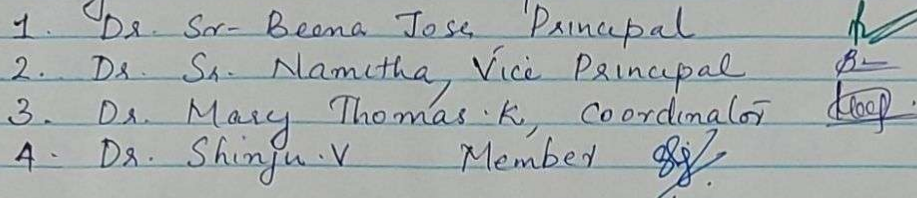 1. Dr. Sr- Beena Jose Principal
2. Dr. Sr. Namitha, Vice Principal
3. Dr. Mary Thomas.K, Coordinator
4. Dr. Shinju.V Member